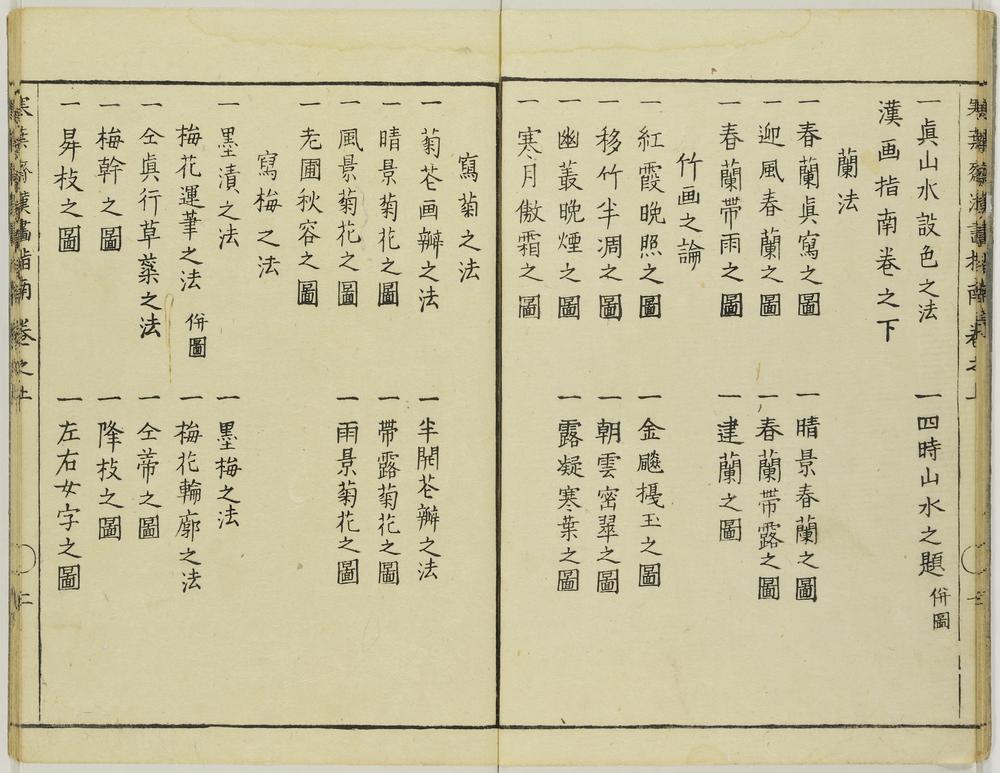 一眞山水設色之法　一四時山水之題 併圖
漢画指南巻之下
蘭法
一春蘭眞寫之圖　一晴景春蘭之圖
一迎風春蘭之圖　一春蘭帯露之圖
一春蘭帯雨之圖　一建蘭之圖
竹画之論
一紅霞晩照之圖　一金飈撹玉之圖
一移竹半凋之圖　一朝雲密翠之圖
一幽叢晩煙之圖　一露凝寒葉之圖
一寒月傲霜之圖
寫菊之法
一菊花画瓣之法　一半開花瓣之法
一晴景菊花之圖　一帯露菊花之圖
一風景菊花之圖　一雨景菊花之圖
一老圃秋容之圖
寫梅之法
一墨漬之法　一墨梅之法
梅花運筆之法 併圖　一梅花輪廓之法
一仝眞行草蘂之法　一仝蒂之圖
一梅幹之圖　一降枝之圖
一昇枝之圖　一左右女字之圖
寒葉齋漢畫指南 巻之上 二